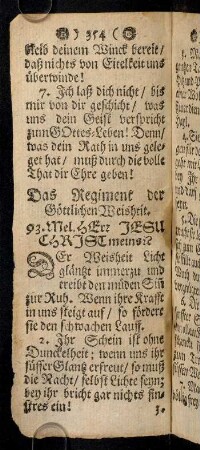 ) 354 (
stelb deinem Winck bereit/
daß nichts von Eitelkeit uns
überwinde!
7. Ich laß dich nicht/ bis
mir von dir geschicht/ was
uns dein Geist verspricht
zum GOttes-Leben! Denn/
was dein Rath in uns gele-
get hat/ muß durch die volle
That dir Ehre geben!
Das Regiment der
Göttlichen Weisheit.
93. Mel. HErr JESU
CHRIST meins:?
DEr Weisheit Licht
gläntzt immerzu und
treibt den müden Sin
zur Ruh. Wenn ihre Krafft
in uns steigt auf/ so fördere
sie den schwachen Lauff.
2. Ihr Schein ist ohne
Dunckelheit; wenn uns ihr
süsser Glantz erfreut/ so muß
die Nacht/ selbst Lichte seyn;
bey ihr bricht gar nichts fin-
stres ein!
3.